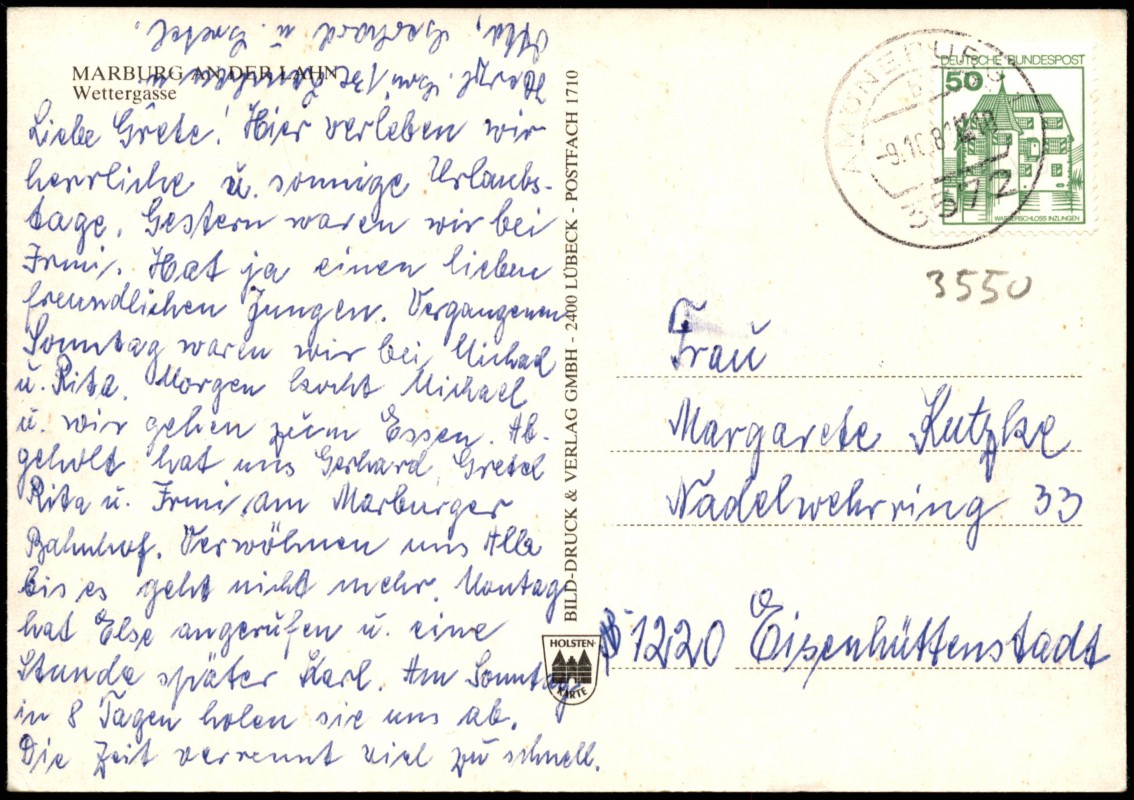 MARBURG AN DER LAHN
Wettergasse
Liebe Grete! Hier verleben wir
herrliche u. sonnige Urlaubs-
tage. Gestern waren wir bei
Irmi. Hat ja einen lieben
freundlichen Jungen. Vergangenen
Sonntag waren wir bei Michael
u. Rita. Morgen kocht Michael
u. wir gehen zum Essen. Ab-
geholt hat uns Gerhard, Gretel
Rita u. Irmi, am Marburger
Bahnhof. Verwöhnen uns Alle
bis es geht nicht mehr. Montag
hat Else angerufen u. eine
Stunde später Karl. Am Sonntag
in 8 Tagen holen sie uns ab.
Die Zeit verrennt viel zu schnell.
Herzl.
Gerhard u. Gretel.
BILD-DRUCK & VERLAG GMBH - 2400 LÜBECK - POSTFACH 1710
HOLSTEN-
KARTE
DEUTSCHE BUNDESPOST
50
WASSERSCHLOSS INZLINGEN
AMÖNEBURG 1
-9.10.81
3572
3550
Frau
Margarete Kutzke
Nadelwehrring 33
1220 Eisenhüttenstadt